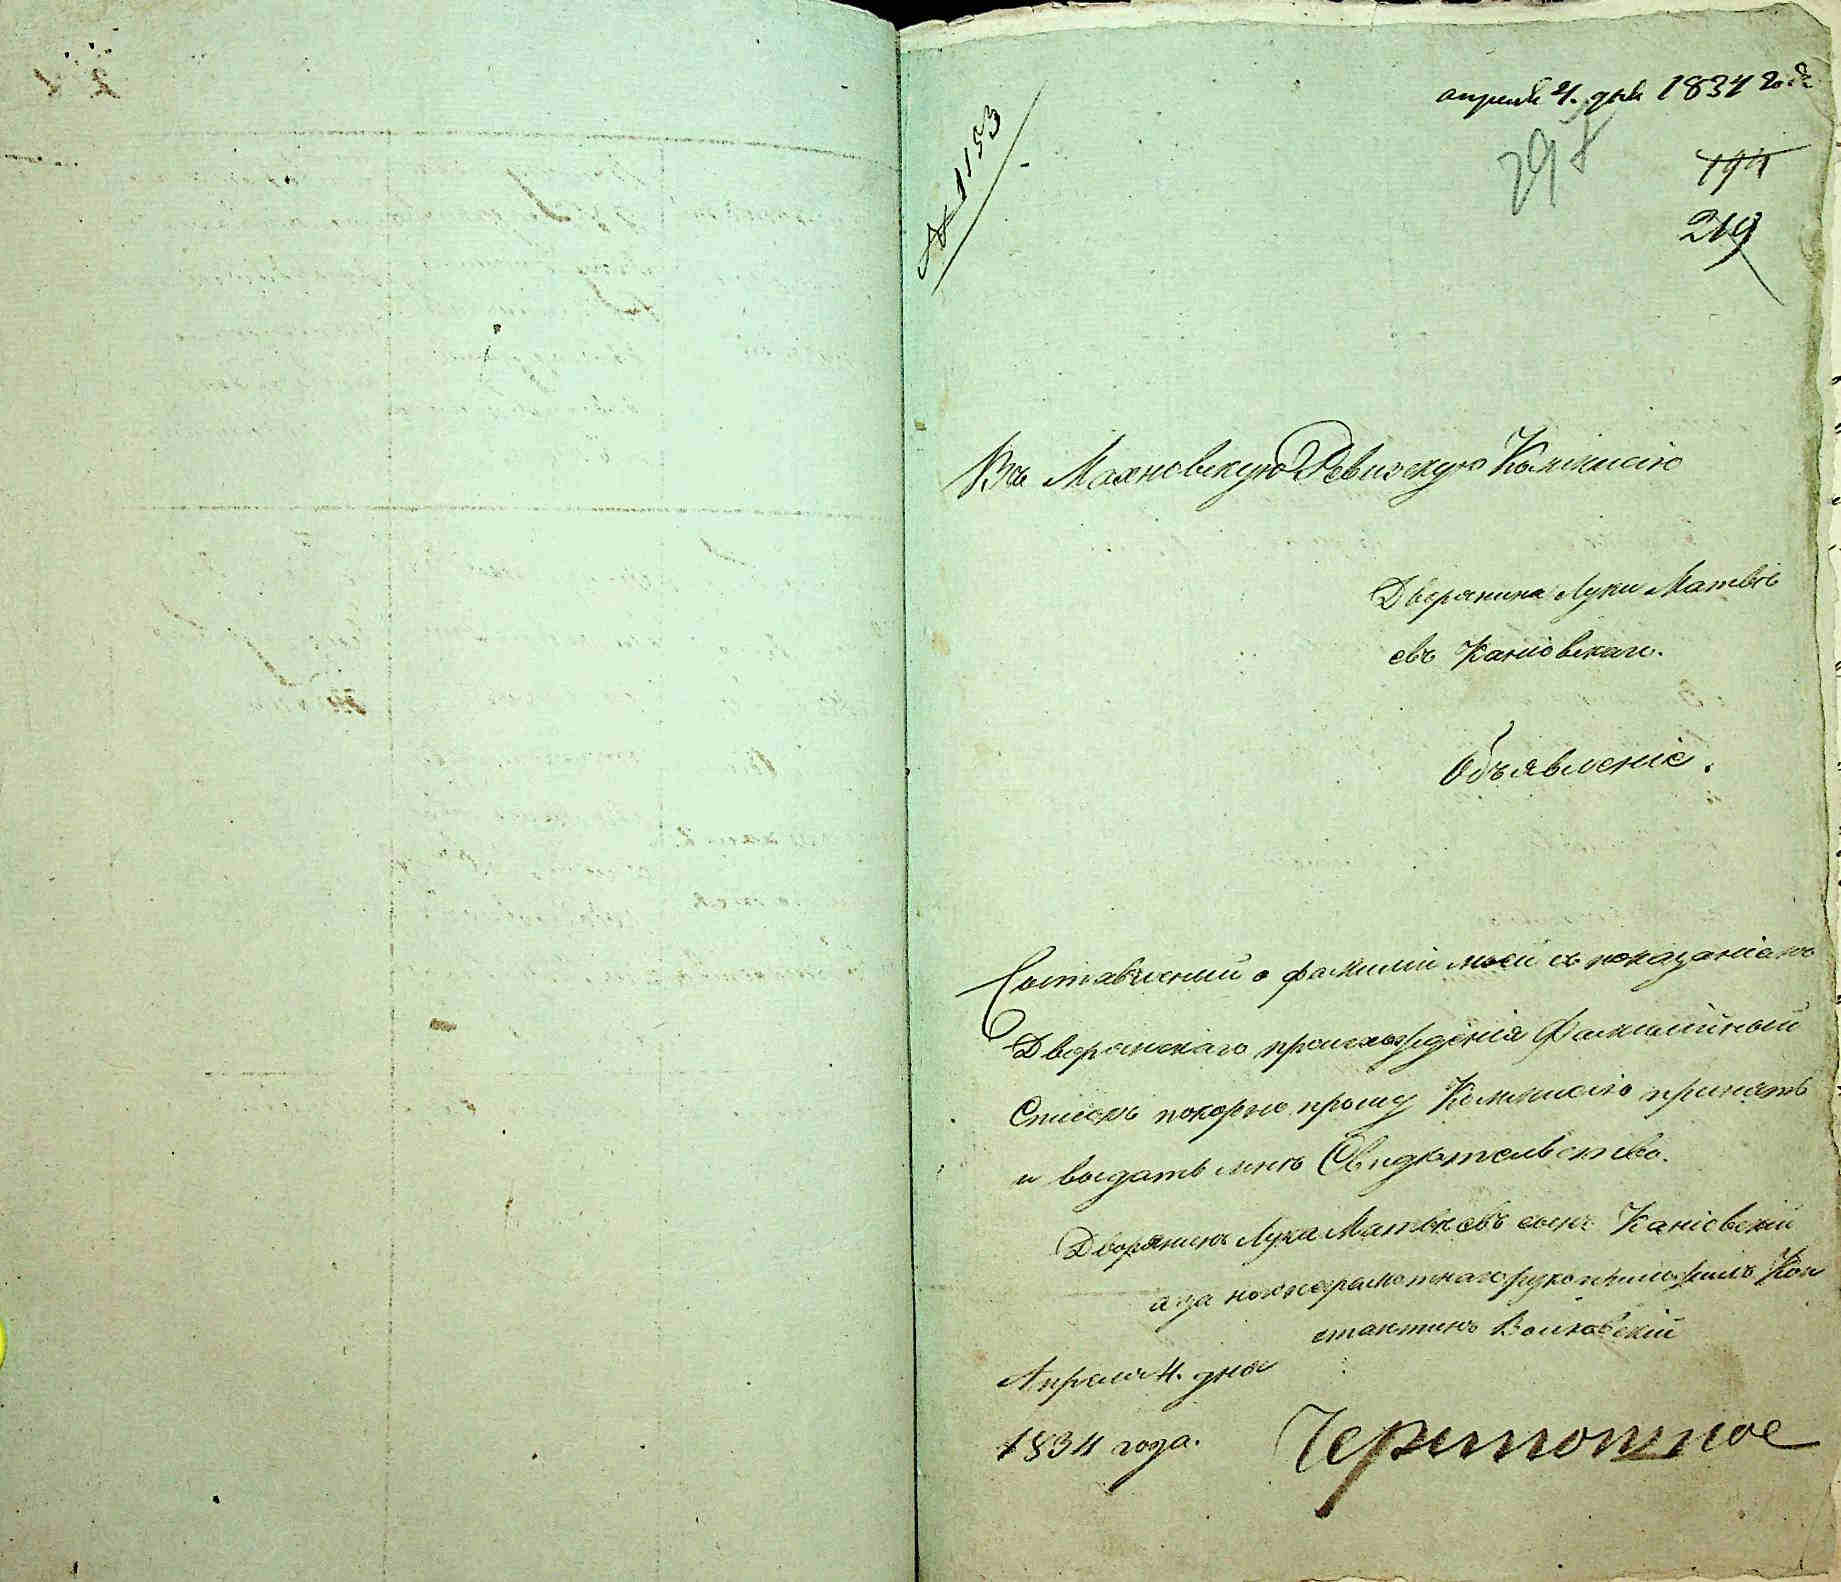 апреля 4. дня 1834 года
298
194
219
№ 1153
Въ Махновскую Ревизскую Коммисію
Дворянина Луки Матвѣе
евъ Каніовскаго.
Объявленіе.
Составленый о фамиліи моей съ показаніемъ
Дворянскаго происхожденія Фамилійный
Списокъ покорно прошу Коммисію принять
и выдать мнѣ Свидѣтельство.
Дворянинъ Лука Матвѣевъ сынъ Каніовскій
а за неграмотнаго руку приложилъ Кон
стантинъ Войковскій
Апреля 4. дня
1834 года.
Черемошное